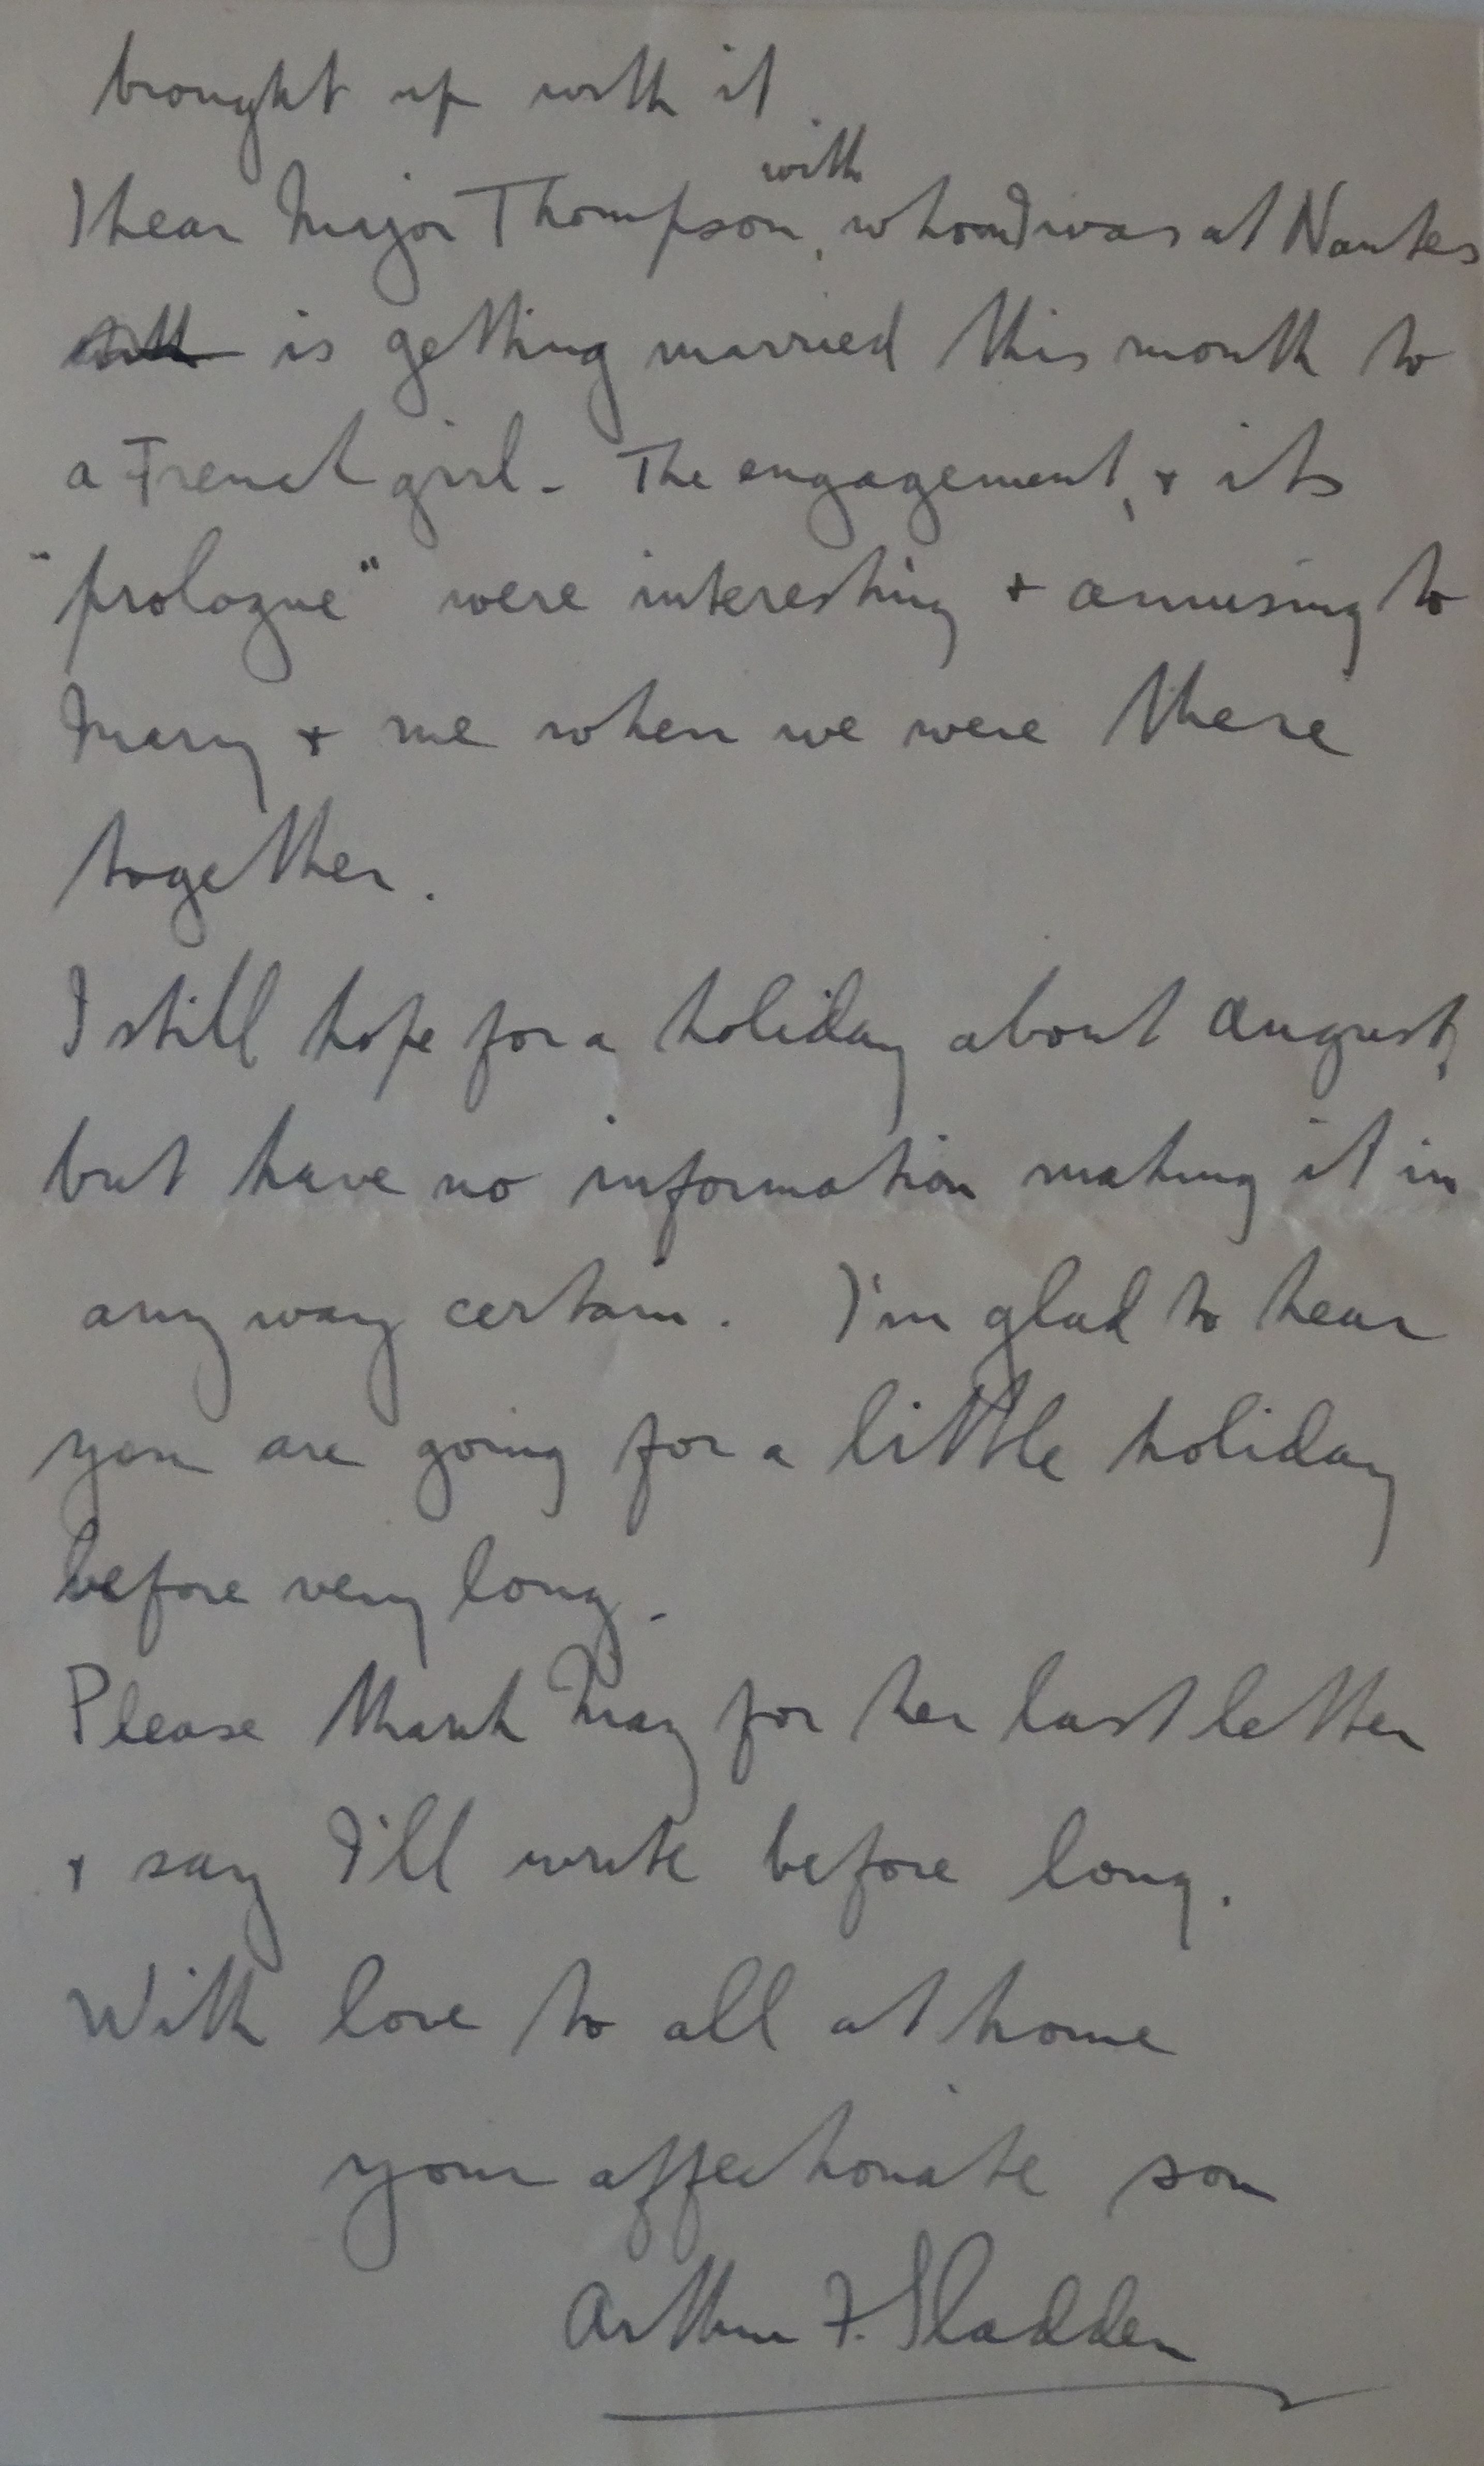 brought up with it.
I hear Major Thompson, with whom I was at Nantes
is getting married this month to
a French girl. The engagement, & its
"prologue" were interesting & amusing to
Mary & me when we were there
together.
I still hope for a holiday about August,
but have no information making it in
any way certain. I'm glad to hear
you are going for a little holiday
before very long.
Please thank May for her last letter
& say I'll write before long.
With love to all at home
your affectionate son
Arthur F. Sladden